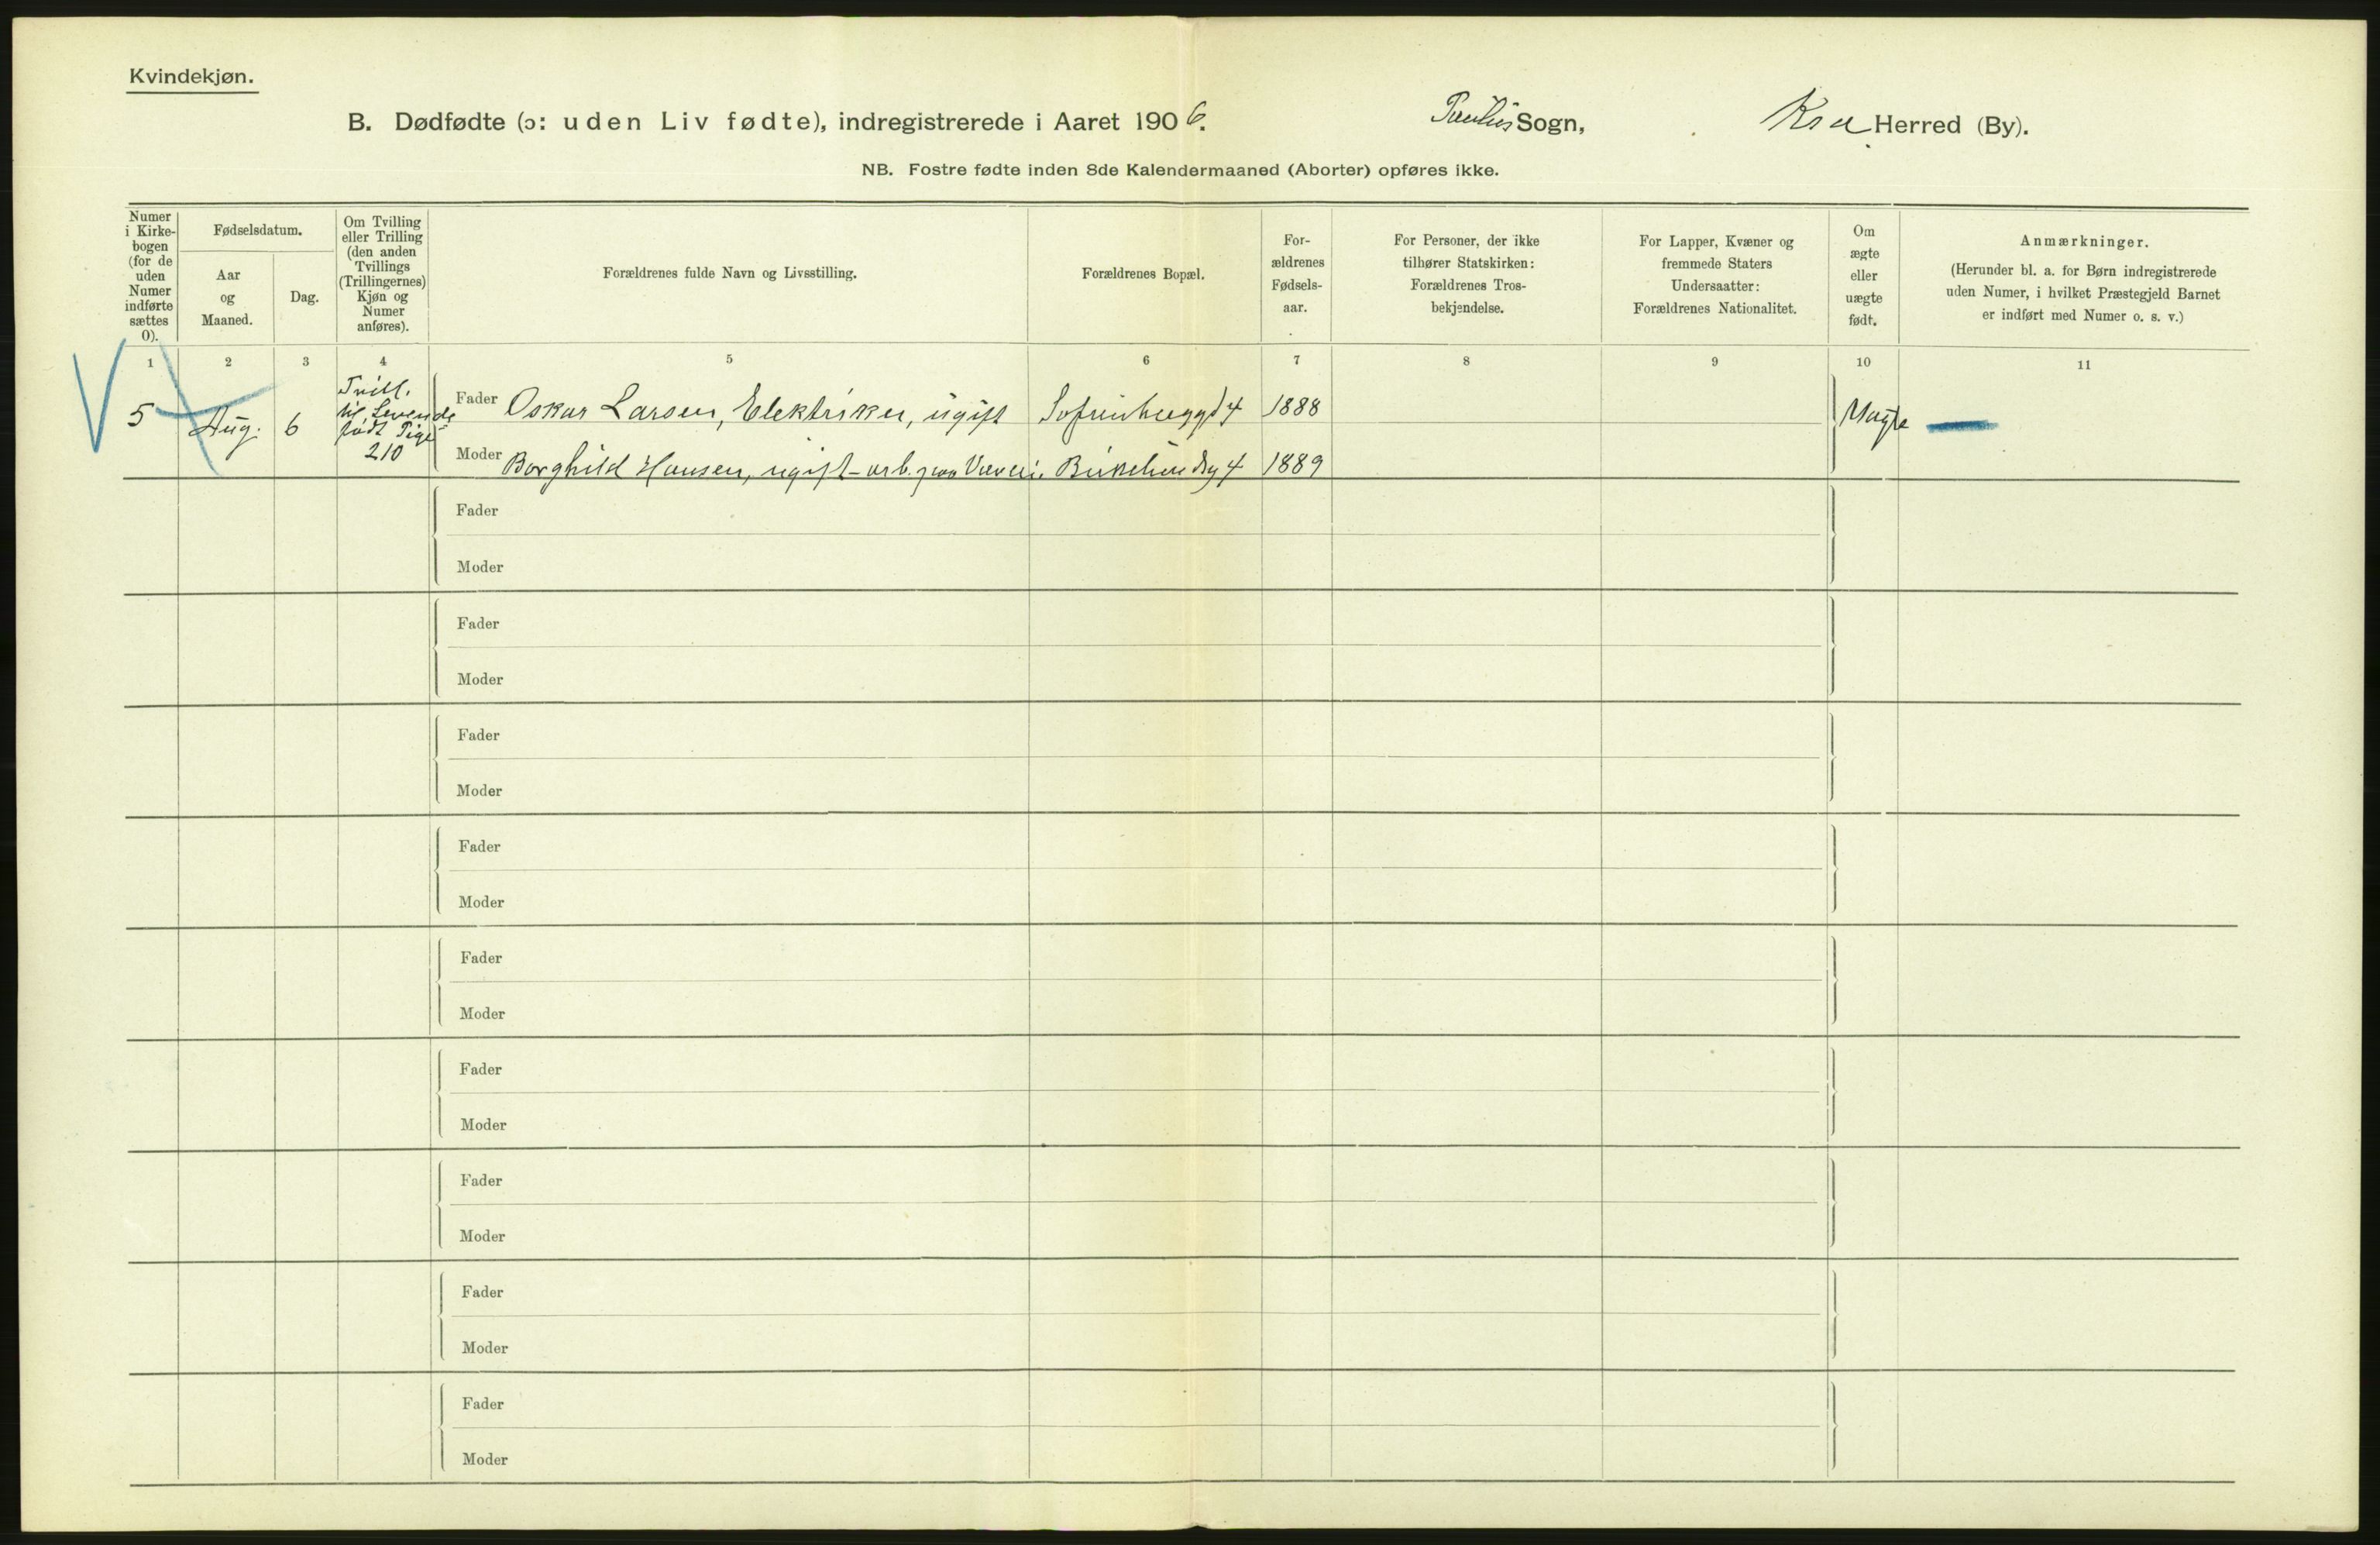 Kvindekjøn.
B. Dødfødte (ɔ: uden Liv fødte), indregistrerede i Aaret 1906. Paulus Sogn, Kra Herred (By).
NB. Fostre fødte inden 8de Kalendermaaned (Aborter) opføres ikke.
Numer i Kirkebogen (for de uden Numer indførte sættes 0).
Fødselsdatum.
Aar og Maaned.
Dag.
Om Tvilling eller Trilling (den anden Tvillings (Trillingernes) Kjøn og Numer anføres).
Forældrenes fulde Navn og Livsstilling.
Forældrenes Bopæl.
Forældrenes Fødselsaar.
For Personer, der ikke tilhører Statskirken: Forældrenes Trosbekjendelse.
For Lapper, Kvæner og fremmede Staters Undersaatter: Forældrenes Nationalitet.
Om ægte eller uægte født.
Anmærkninger.
(Herunder bl. a. for Børn indregistrerede uden Numer, i hvilket Præstegjeld Barnet er indført med Numer o. s. v.)
1 2 3 4 5 6 7 8 9 10 11
5 Aug. 6
Tvill.
til Levende
født Pige
210
Fader Oskar Larsen, Elektriker, ugift 4 1888 Uægte
Moder Borghild Hansen, ugift - arb. paa Væveri. Birkelundsg 4 1889
Fader
Moder
Fader
Moder
Fader
Moder
Fader
Moder
Fader
Moder
Fader
Moder
Fader
Moder
Fader
Moder
Fader
Moder